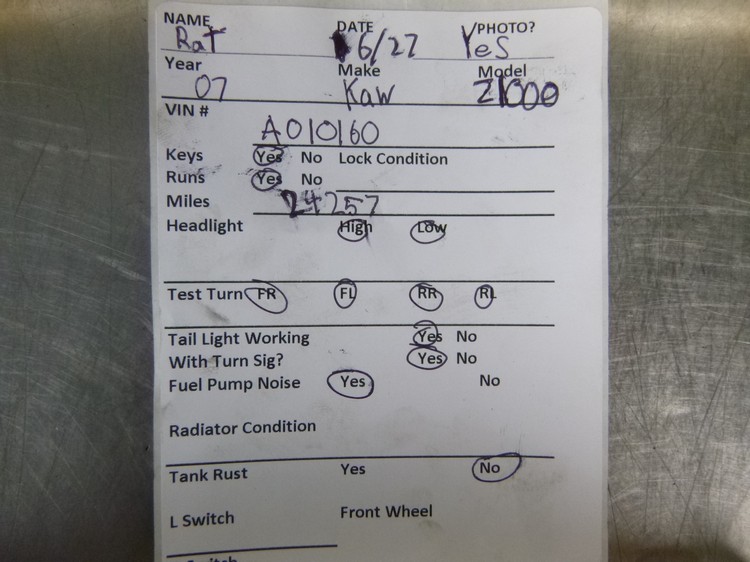 NAME DATE PHOTO?
Rat 6/27 Yes
Year Make Model
07 Kaw Z1000
VIN #
A010160
Keys Yes No Lock Condition
Runs Yes No
Miles 24257
Headlight High Low
Test Turn FR FL RR RL
Tail Light Working Yes No
With Turn Sig? Yes No
Fuel Pump Noise Yes No
Radiator Condition
Tank Rust Yes No
L Switch Front Wheel